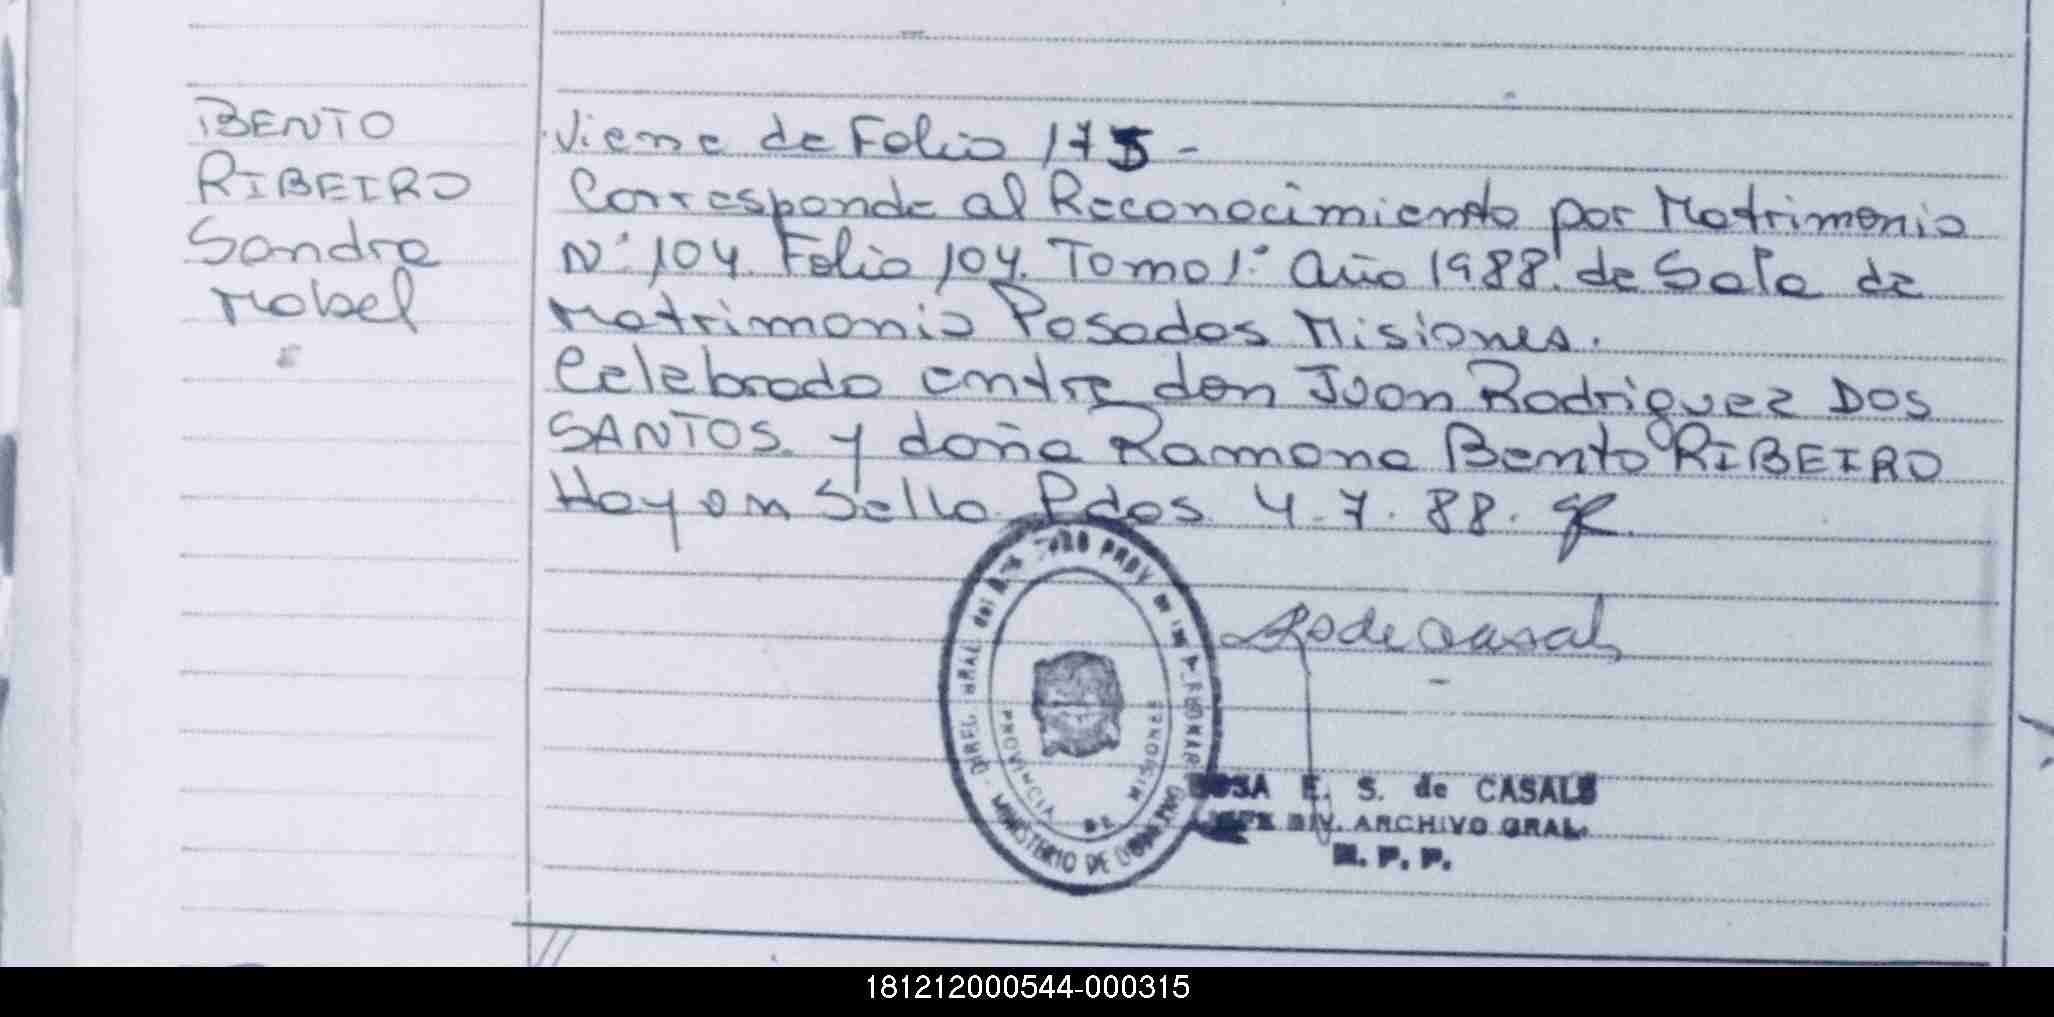 BENTO
RIBEIRO
Sandra
Mabel
Viene de Folio 175-
Corresponde al Reconocimiento por Matrimonio
N° 104. Folio 104. Tomo 1° año 1988. de Sala de
Matrimonio Posadas Misiones.
Celebrado entre don Juan Rodriguez DOS
SANTOS. y doña Ramona Bento RIBEIRO
Hay un Sello. Pdas. 4.7.88.
PROVINCIA DE MISIONES
MINISTERIO DE GOBIERNO
E. S. de CASALS
DIV. ARCHIVO GRAL.
R. P. P.
181212000544-000315